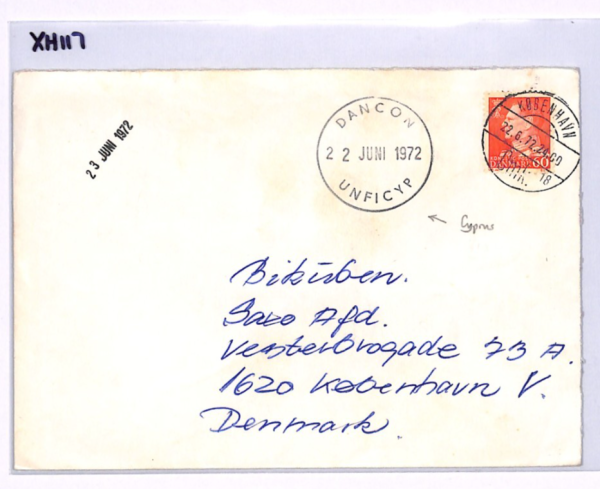 XH117
23 JUNI 1972
DANCON
22 JUNI 1972
UNFICYP
KØBENHAVN
22.6.72.24-00
60
18
Cyprus
Bikuben.
Saxo Afd.
Vesterbrogade 73 A.
1620 København V.
Denmark